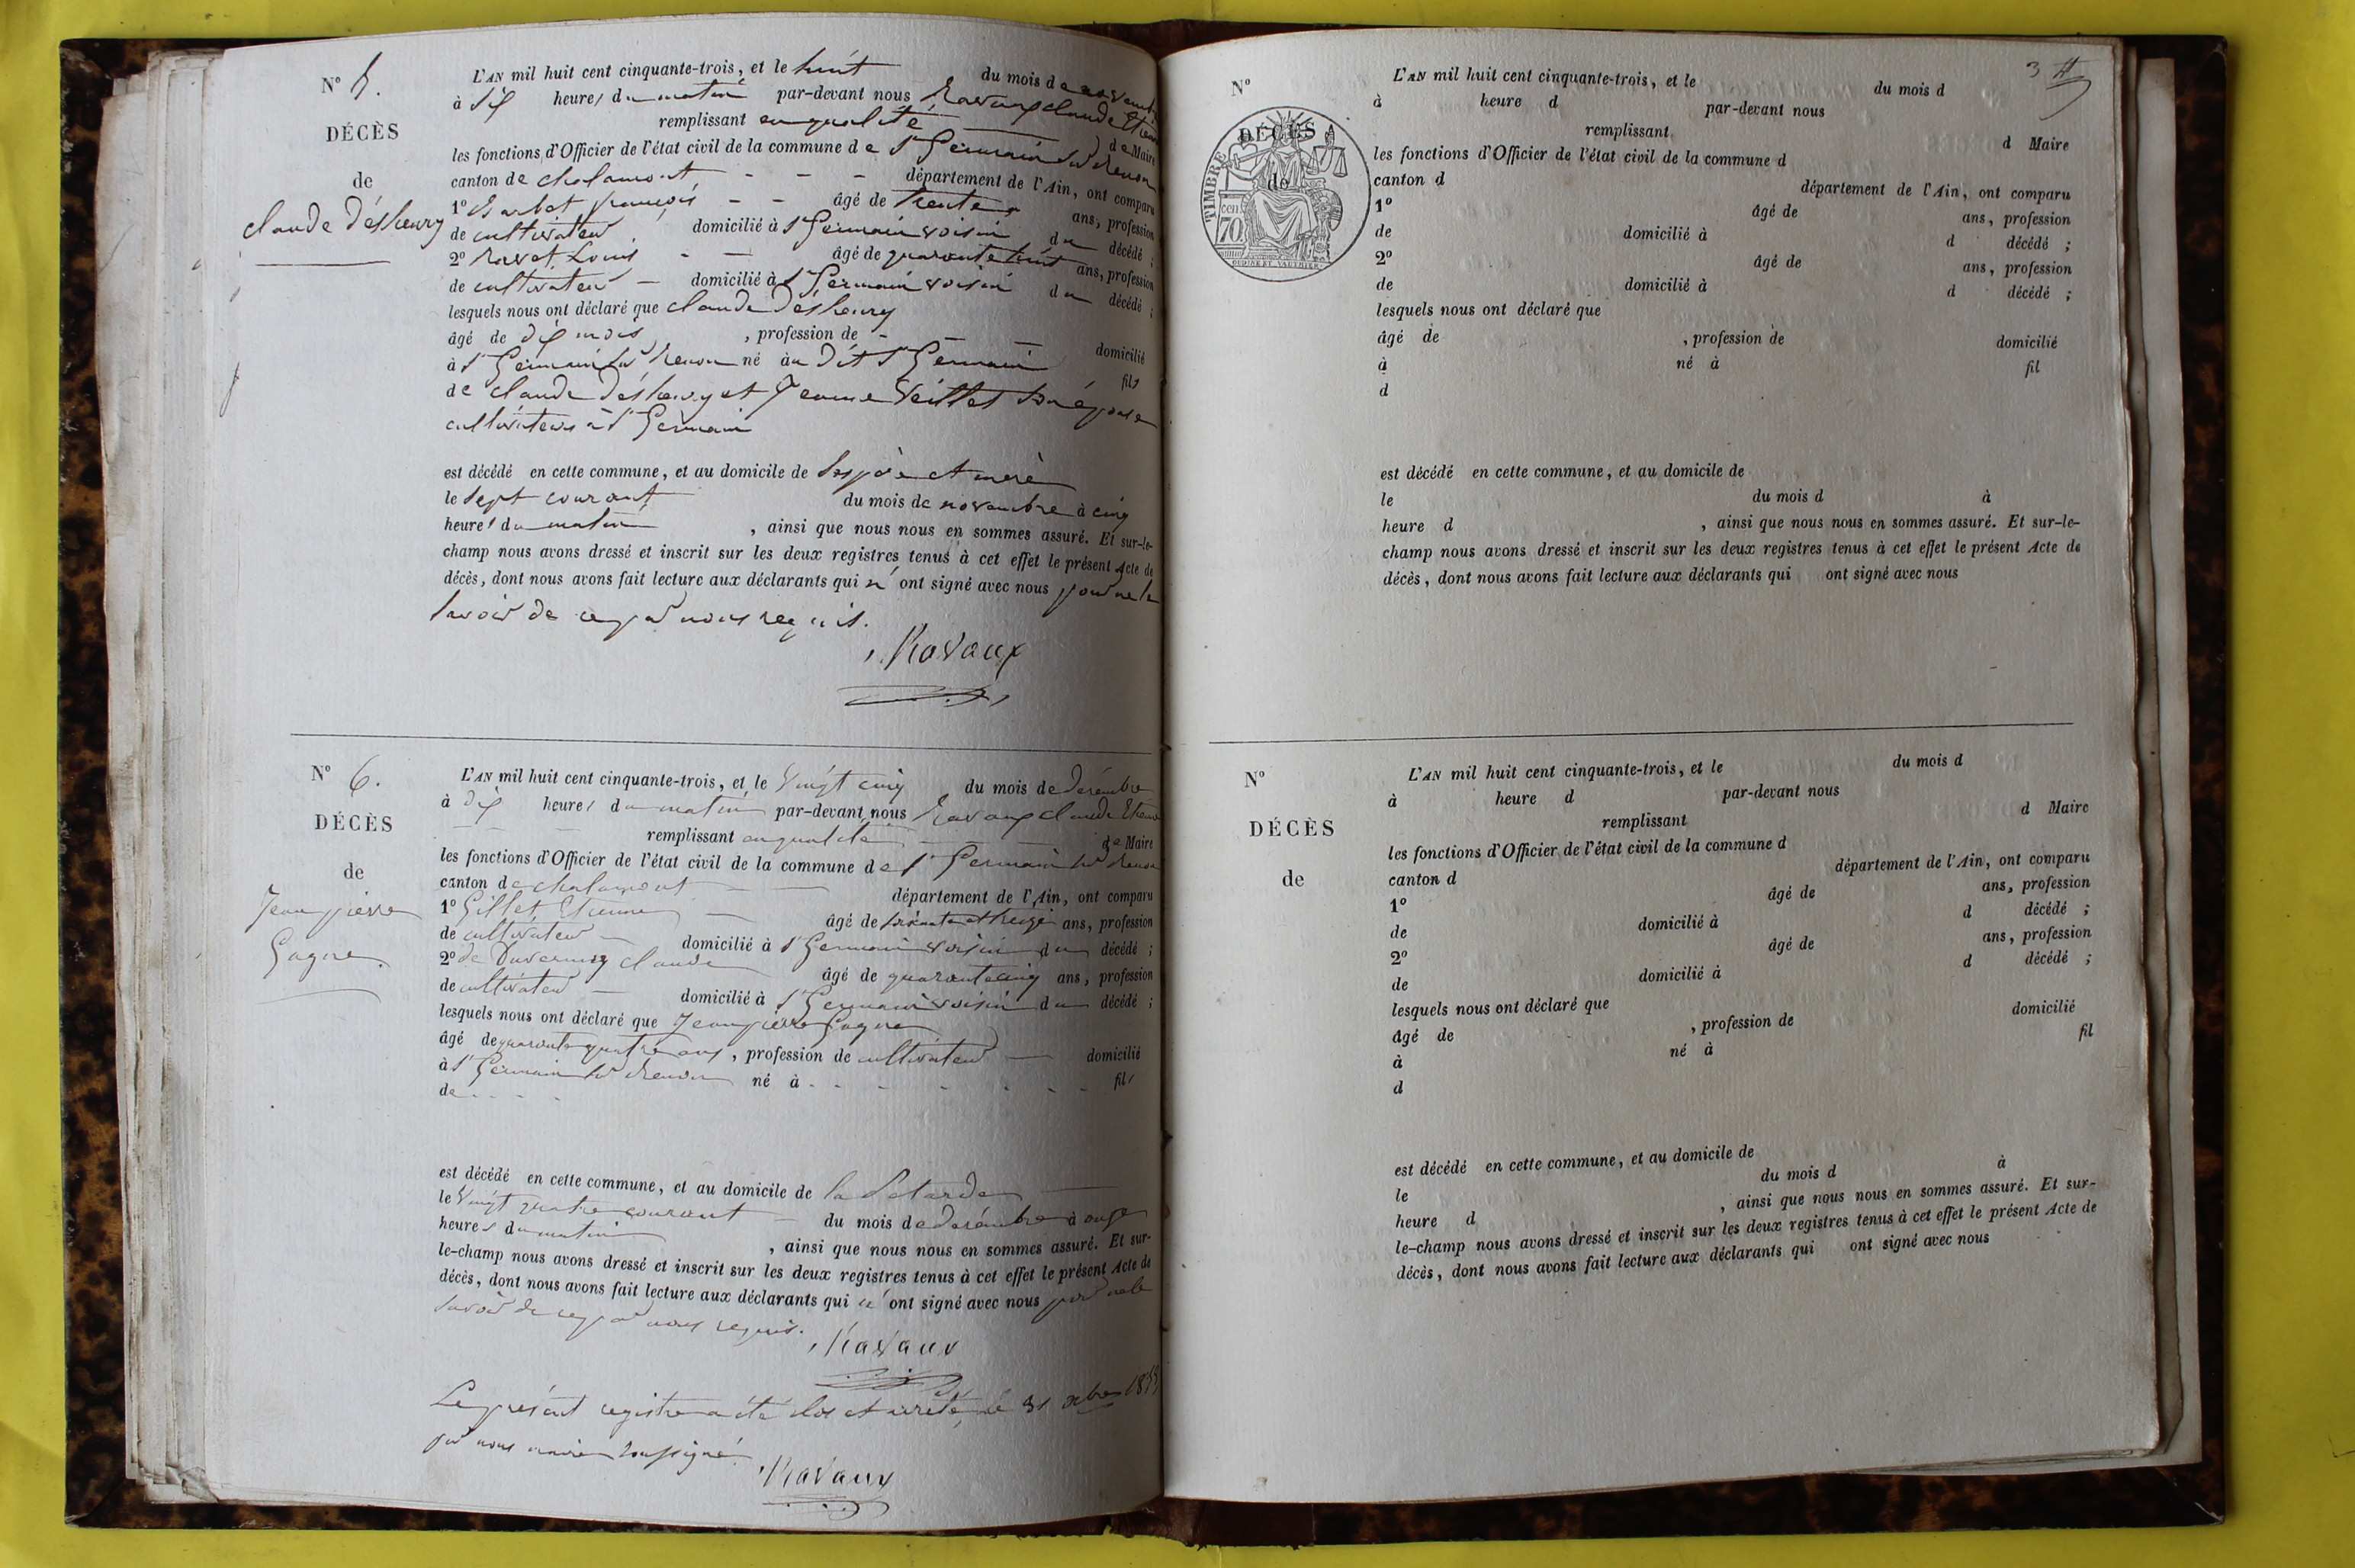 N° 5.
DÉCÈS
de
claude Déshenry
L'AN mil huit cent cinquante-trois, et le huit du mois de novembre
à dix heures du matin par-devant nous Ravaux claude Etienne
remplissant en qualité de Maire
les fonctions d'Officier de l'état civil de la commune de St Germain sur Renon
canton de chalamont - - - département de l'Ain, ont comparu
1° Barbet françois - - âgé de trente ans, profession
de cultivateur domicilié à St Germain voisin du décédé ;
2° Ravet Louis - - âgé de quarante huit ans, profession
de cultivateur domicilié à St Germain voisin du décédé ;
lesquels nous ont déclaré que claude Déshenry
âgé de dix mois, profession de - - domicilié
à St Germain sur Renon né au dit St Germain fils
de claude Déshenry et Jeanne Veillet son épouse
cultivateurs à St Germain
est décédé en cette commune, et au domicile de ses père et mère
le sept courant du mois de novembre à cinq
heures du matin, ainsi que nous nous en sommes assuré. Et sur-le-
champ nous avons dressé et inscrit sur les deux registres tenus à cet effet le présent Acte de
décès, dont nous avons fait lecture aux déclarants qui n'ont signé avec nous pour ne le
savoir de ce par nous requis.
Ravaux
N° 6.
DÉCÈS
de
Jean pierre
Gagne
L'AN mil huit cent cinquante-trois, et le Vingt cinq du mois de Décembre
à dix heures du matin par-devant nous Ravaux claude Etienne
remplissant en qualité de Maire
les fonctions d'Officier de l'état civil de la commune de St Germain sur Renon
canton de chalamont département de l'Ain, ont comparu
1° Gillet Etienne âgé de soixante et treize ans, profession
de cultivateur domicilié à St Germain voisin du décédé ;
2° claude âgé de quarante cinq ans, profession
de cultivateur domicilié à St Germain voisin du décédé ;
lesquels nous ont déclaré que Jean pierre Gagne
âgé de quarante quatre ans, profession de cultivateur domicilié
à St Germain sur Renon né à - - - fils
de - - - -
est décédé en cette commune, et au domicile de la
le Vingt quatre courant du mois de Décembre à onze
heures du matin, ainsi que nous nous en sommes assuré. Et sur-
le-champ nous avons dressé et inscrit sur les deux registres tenus à cet effet le présent Acte de
décès, dont nous avons fait lecture aux déclarants qui n'ont signé avec nous pour ne le
savoir de ce par nous requis.
Ravaux
Le présent registre a été clos et arrêté le 31 xbre 1853
par nous maire soussigné
Ravaux
3
N°
DÉCÈS
de
TIMBRE
70 cent
L'AN mil huit cent cinquante-trois, et le du mois d
à heure d par-devant nous
remplissant d Maire
les fonctions d'Officier de l'état civil de la commune d
canton d département de l'Ain, ont comparu
1° âgé de ans, profession
de domicilié à d décédé ;
2° âgé de ans, profession
de domicilié à d décédé ;
lesquels nous ont déclaré que
âgé de , profession de domicilié
à né à fil
d
est décédé en cette commune, et au domicile de
le du mois d à
heure d , ainsi que nous nous en sommes assuré. Et sur-le-
champ nous avons dressé et inscrit sur les deux registres tenus à cet effet le présent Acte de
décès, dont nous avons fait lecture aux déclarants qui ont signé avec nous
N°
DÉCÈS
de
L'AN mil huit cent cinquante-trois, et le du mois d
à heure d par-devant nous
remplissant d Maire
les fonctions d'Officier de l'état civil de la commune d
canton d département de l'Ain, ont comparu
1° âgé de ans, profession
de domicilié à d décédé ;
2° âgé de ans, profession
de domicilié à d décédé ;
lesquels nous ont déclaré que
âgé de , profession de domicilié
à né à fil
d
est décédé en cette commune, et au domicile de
le du mois d à
heure d , ainsi que nous nous en sommes assuré. Et sur-
le-champ nous avons dressé et inscrit sur les deux registres tenus à cet effet le présent Acte de
décès, dont nous avons fait lecture aux déclarants qui ont signé avec nous